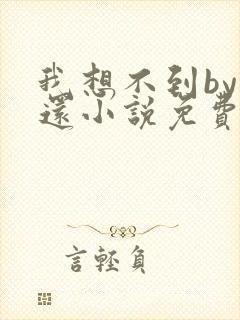 我想不到by
還小說免費
言輕負